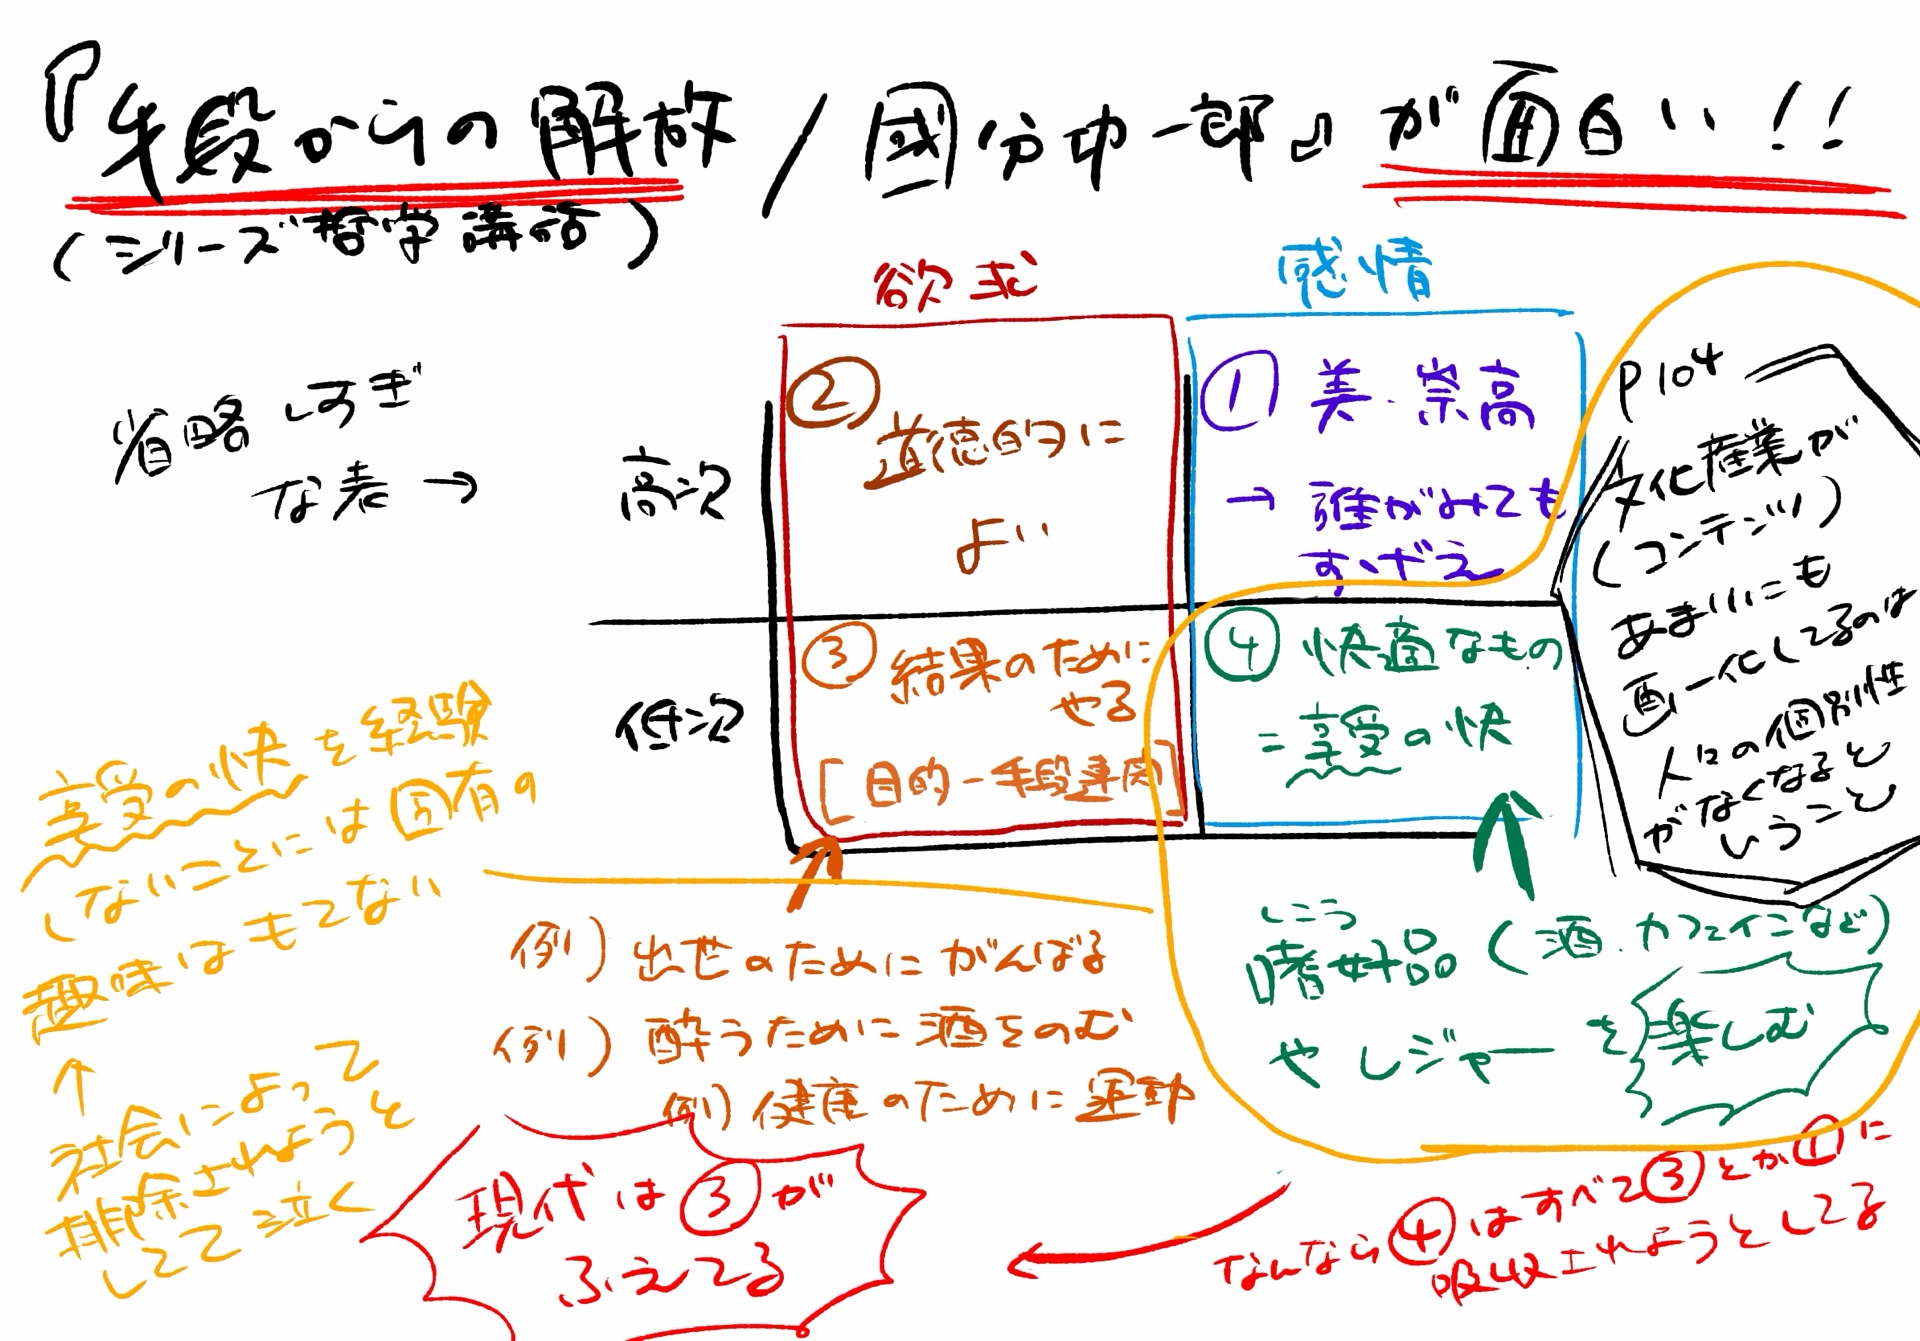 『手段からの解放/國分功一郎』が面白い!!
(シリーズ哲学講話)
欲求
感情
省略しすぎ
な表→
高次
低次
② 道徳的に
よい
① 美・崇高
→ 誰がみても
すげえ
③ 結果のために
やる
[目的-手段連関]
④ 快適なもの
=享受の快
P104
文化産業が
(コンテンツ)
あまりにも
画一化してるのは
人口の個別性
がなくなると
いうこと
享受の快を経験
しないことには固有の
趣味はもてない
↑
社会によって
排除されようと
してて泣く
例) 出世のためにがんばる
例) 酔うために酒をのむ
例) 健康のために運動
しこう
嗜好品(酒、カフェインなど)
やレジャーを楽しむ
なんなら④はすべて③とか①に
吸収されようとしてる
現代は③が
ふえてる